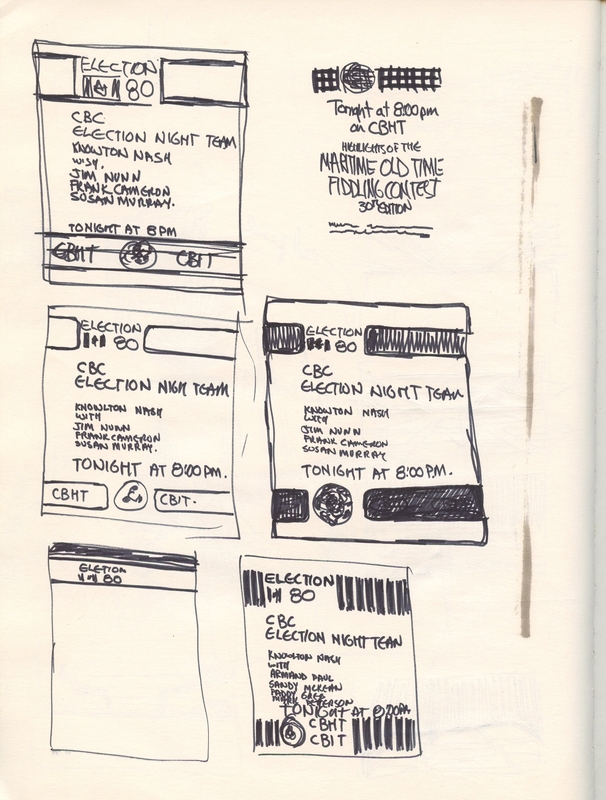 ELECTION
80
CBC
ELECTION NIGHT TEAM
KNOWTON NASH
WITH
JIM NUNN
FRANK CAMERON
SUSAN MURRAY.
TONIGHT AT 8PM
CBHT CBIT
Tonight at 8:00pm
on CBHT
HIGHLIGHTS OF THE
MARITIME OLD TIME
FIDDLING CONTEST
30TH EDITION
ELECTION
80
CBC
ELECTION NIGH TEAM
KNOWLTON NASH
WITH
JIM NUNN
FRANK CAMERON
SUSAN MURRAY.
TONIGHT AT 8:00PM.
CBHT CBIT.
ELECTION
80
CBC
ELECTION NIGHT TEAM
KNOWTON NASH
WITH
JIM NUNN
FRANK CAMERON
SUSAN MURRAY
TONIGHT AT 8:00PM.
ELETION
80
ELECTION
80
CBC
ELECTION NIGHT TEAN
KNOWLTON NASH
WITH
ARMAND PAUL
SANDY MCKEAN
PADDY GREG
PETERSON
TONIGHT AT 8:00PM
CBHT
CBIT